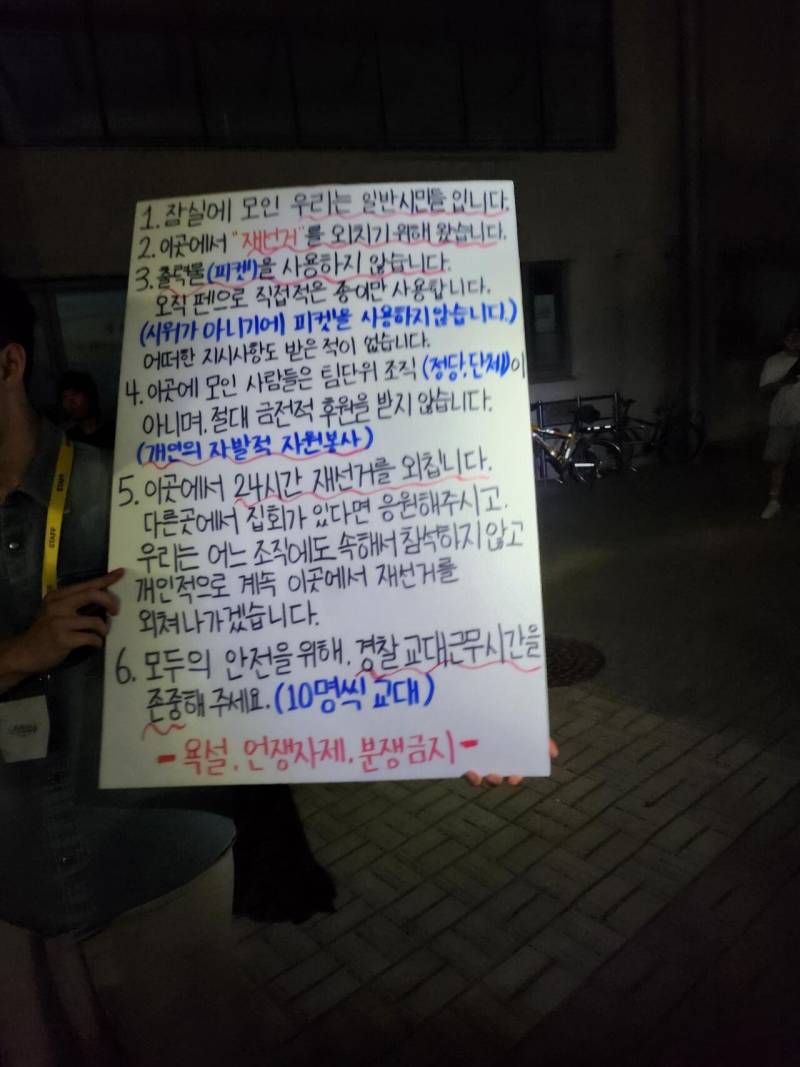 1. 잠실에 모인 우리는 일반시민들 입니다.
2. 이곳에서 "재선거"를 외치기 위해 왔습니다.
3. 출력물(피켓)을 사용하지 않습니다.
오직 펜으로 직접적은 종이만 사용합니다.
(시위가 아니기에 피켓을 사용하지 않습니다.)
어떠한 지시사항도 받은 적이 없습니다.
4. 이곳에 모인 사람들은 팀단위 조직 (정당,단체)이
아니며, 절대 금전적 후원을 받지 않습니다.
(개인의 자발적 자원봉사)
5. 이곳에서 24시간 재선거를 외칩니다.
다른곳에서 집회가 있다면 응원해주시고.
우리는 어느 조직에도 속해서 참석하지 않고
개인적으로 계속 이곳에서 재선거를
외쳐나가겠습니다.
6. 모두의 안전을 위해, 경찰 교대근무시간을
존중해 주세요. (10명씩 교대)
- 욕설, 언쟁자제, 분쟁금지 -
STAFF
STAFF